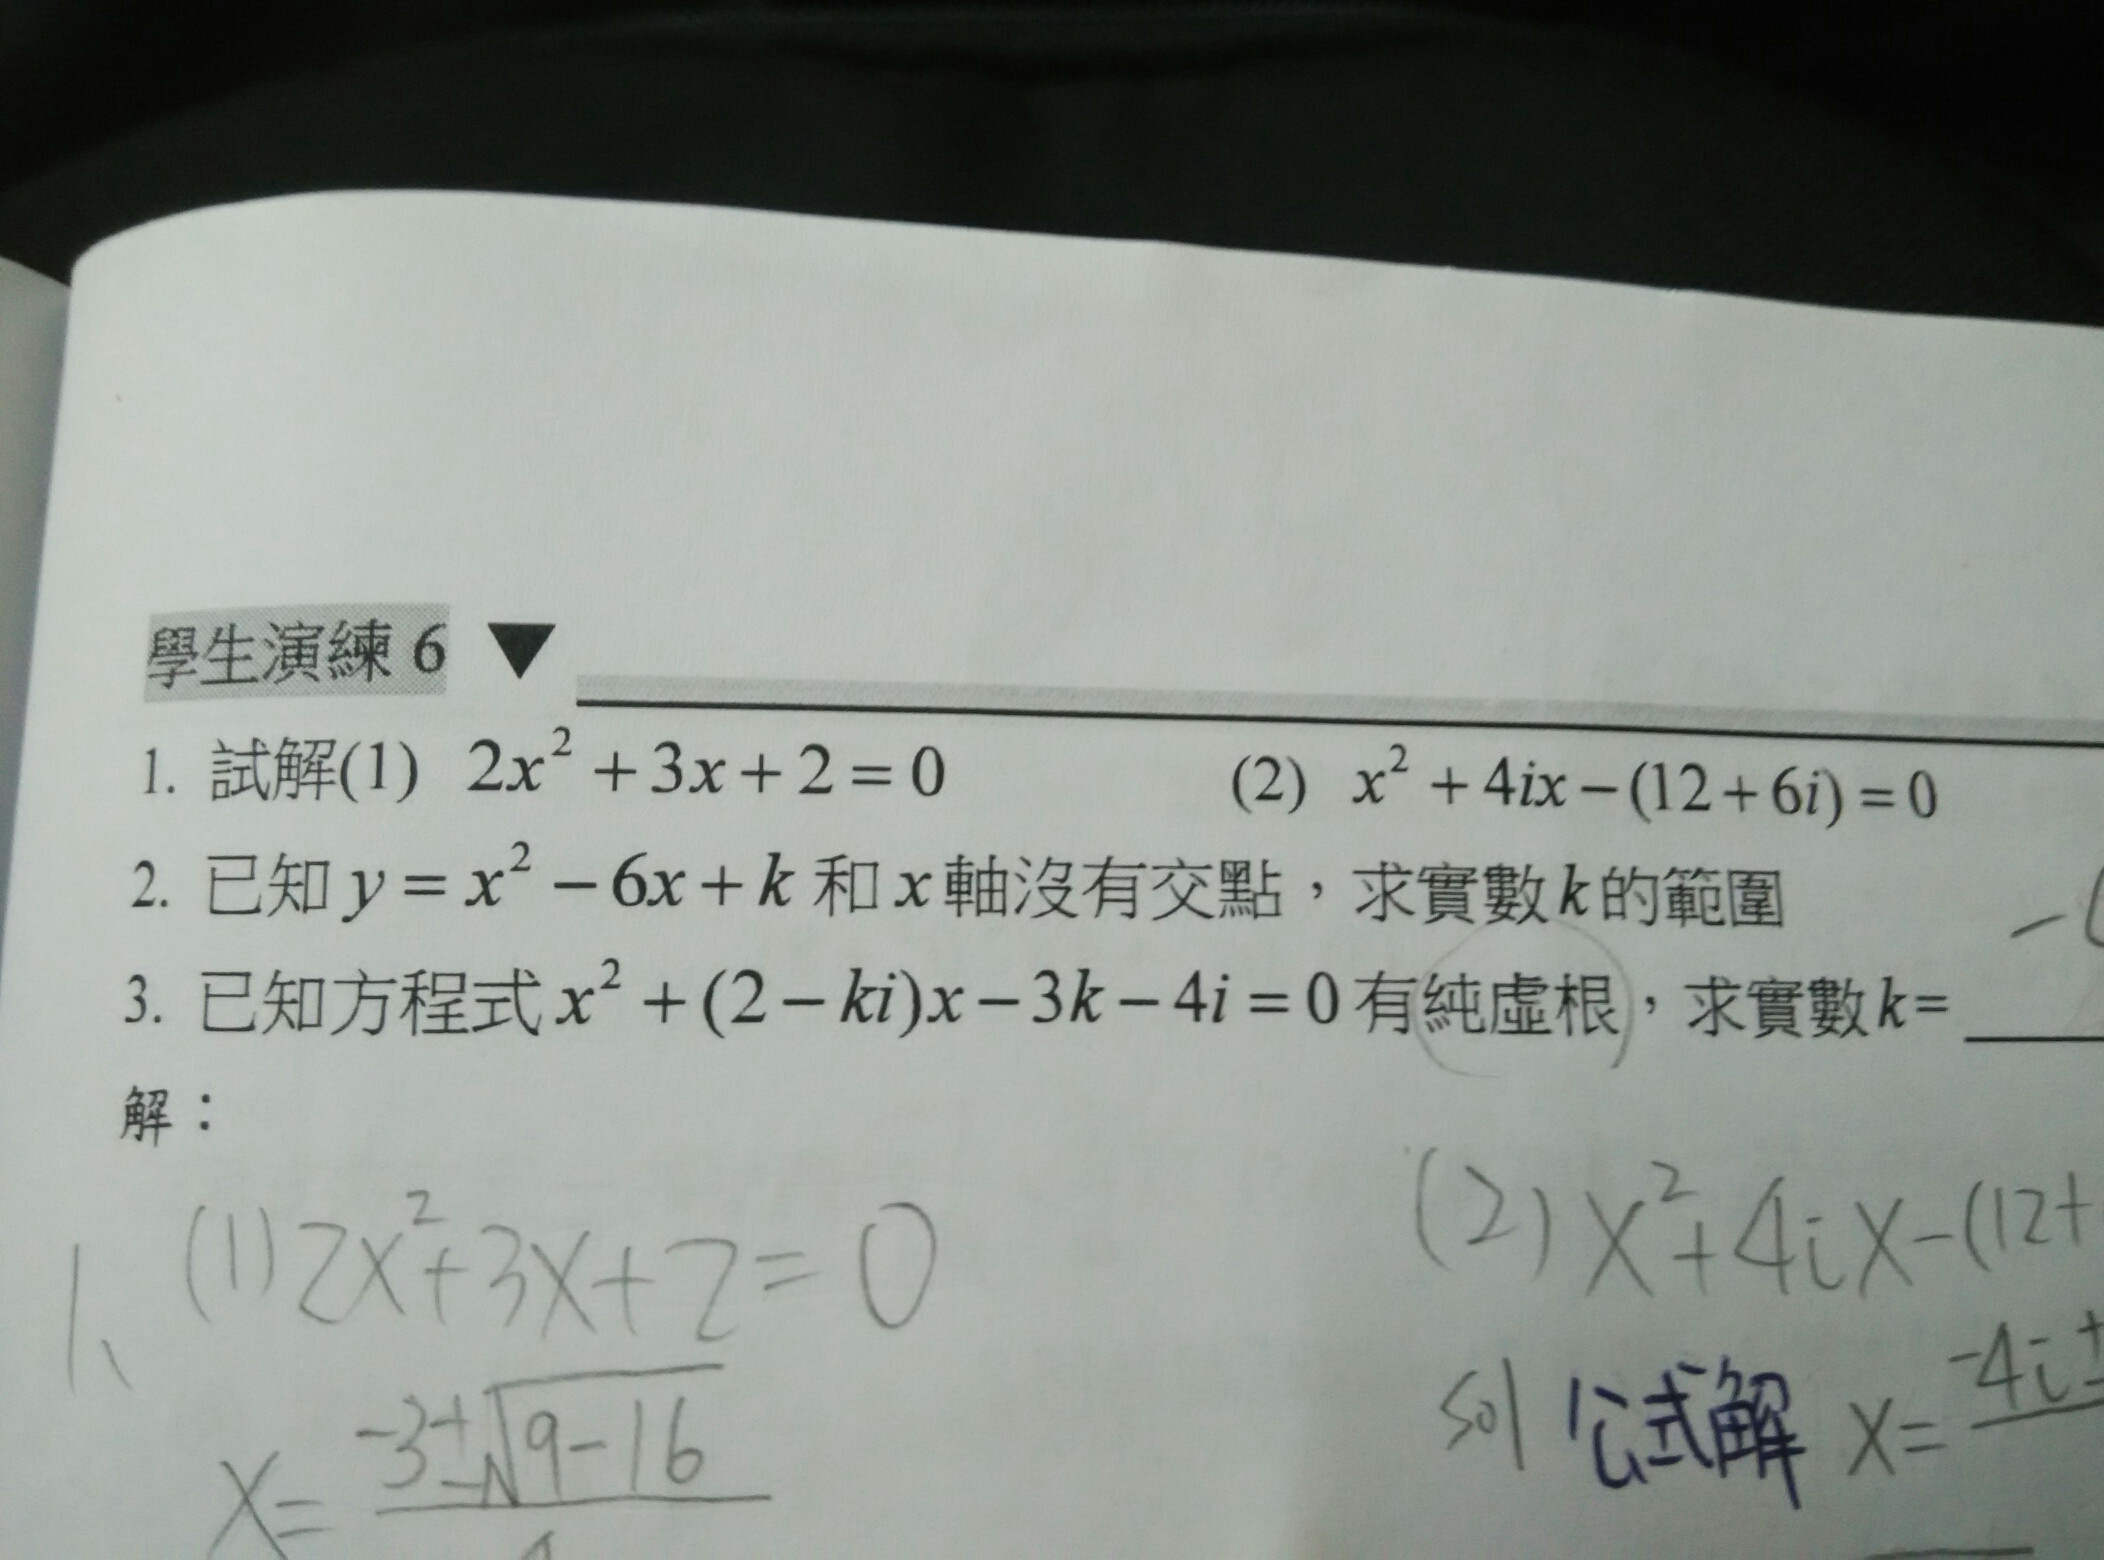 學生演練 6 ▼
1. 試解(1) 2x² + 3x + 2 = 0 (2) x² + 4ix − (12 + 6i) = 0
2. 已知 y = x² − 6x + k 和 x 軸沒有交點，求實數 k 的範圍
3. 已知方程式 x² + (2 − ki)x − 3k − 4i = 0 有純虛根，求實數 k =
解：
1、(1) 2x² + 3x + 2 = 0 (2) x² + 4ix − (12+
x = -3±√9−16 sol 公式解 x = -4i±